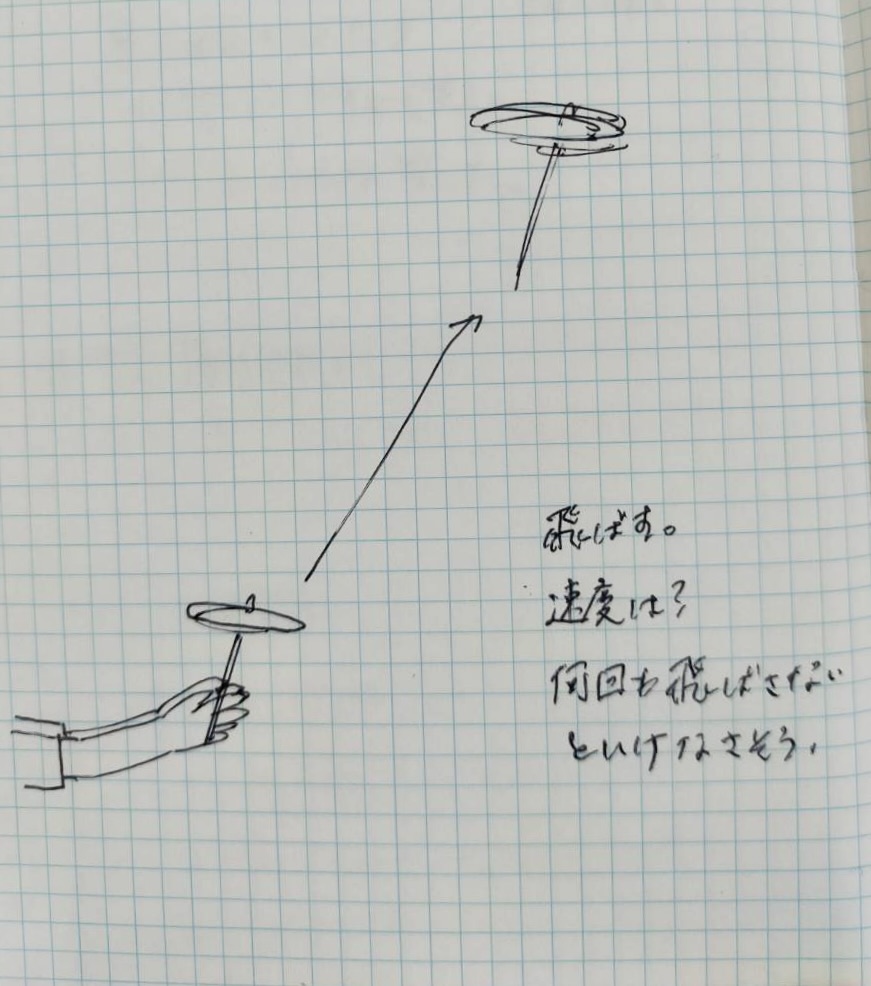 飛ばす。
速度は?
何回も飛ばさない
といけなさそう。